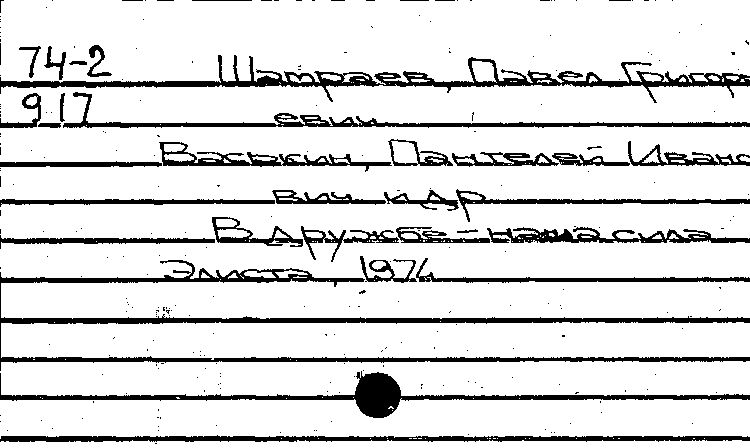 74-2 Шатраев, Павел Григорь
917 евич
Васькин, Пантелей Ивано
вич и др
В дружбе - наша сила
Элиста, 1974